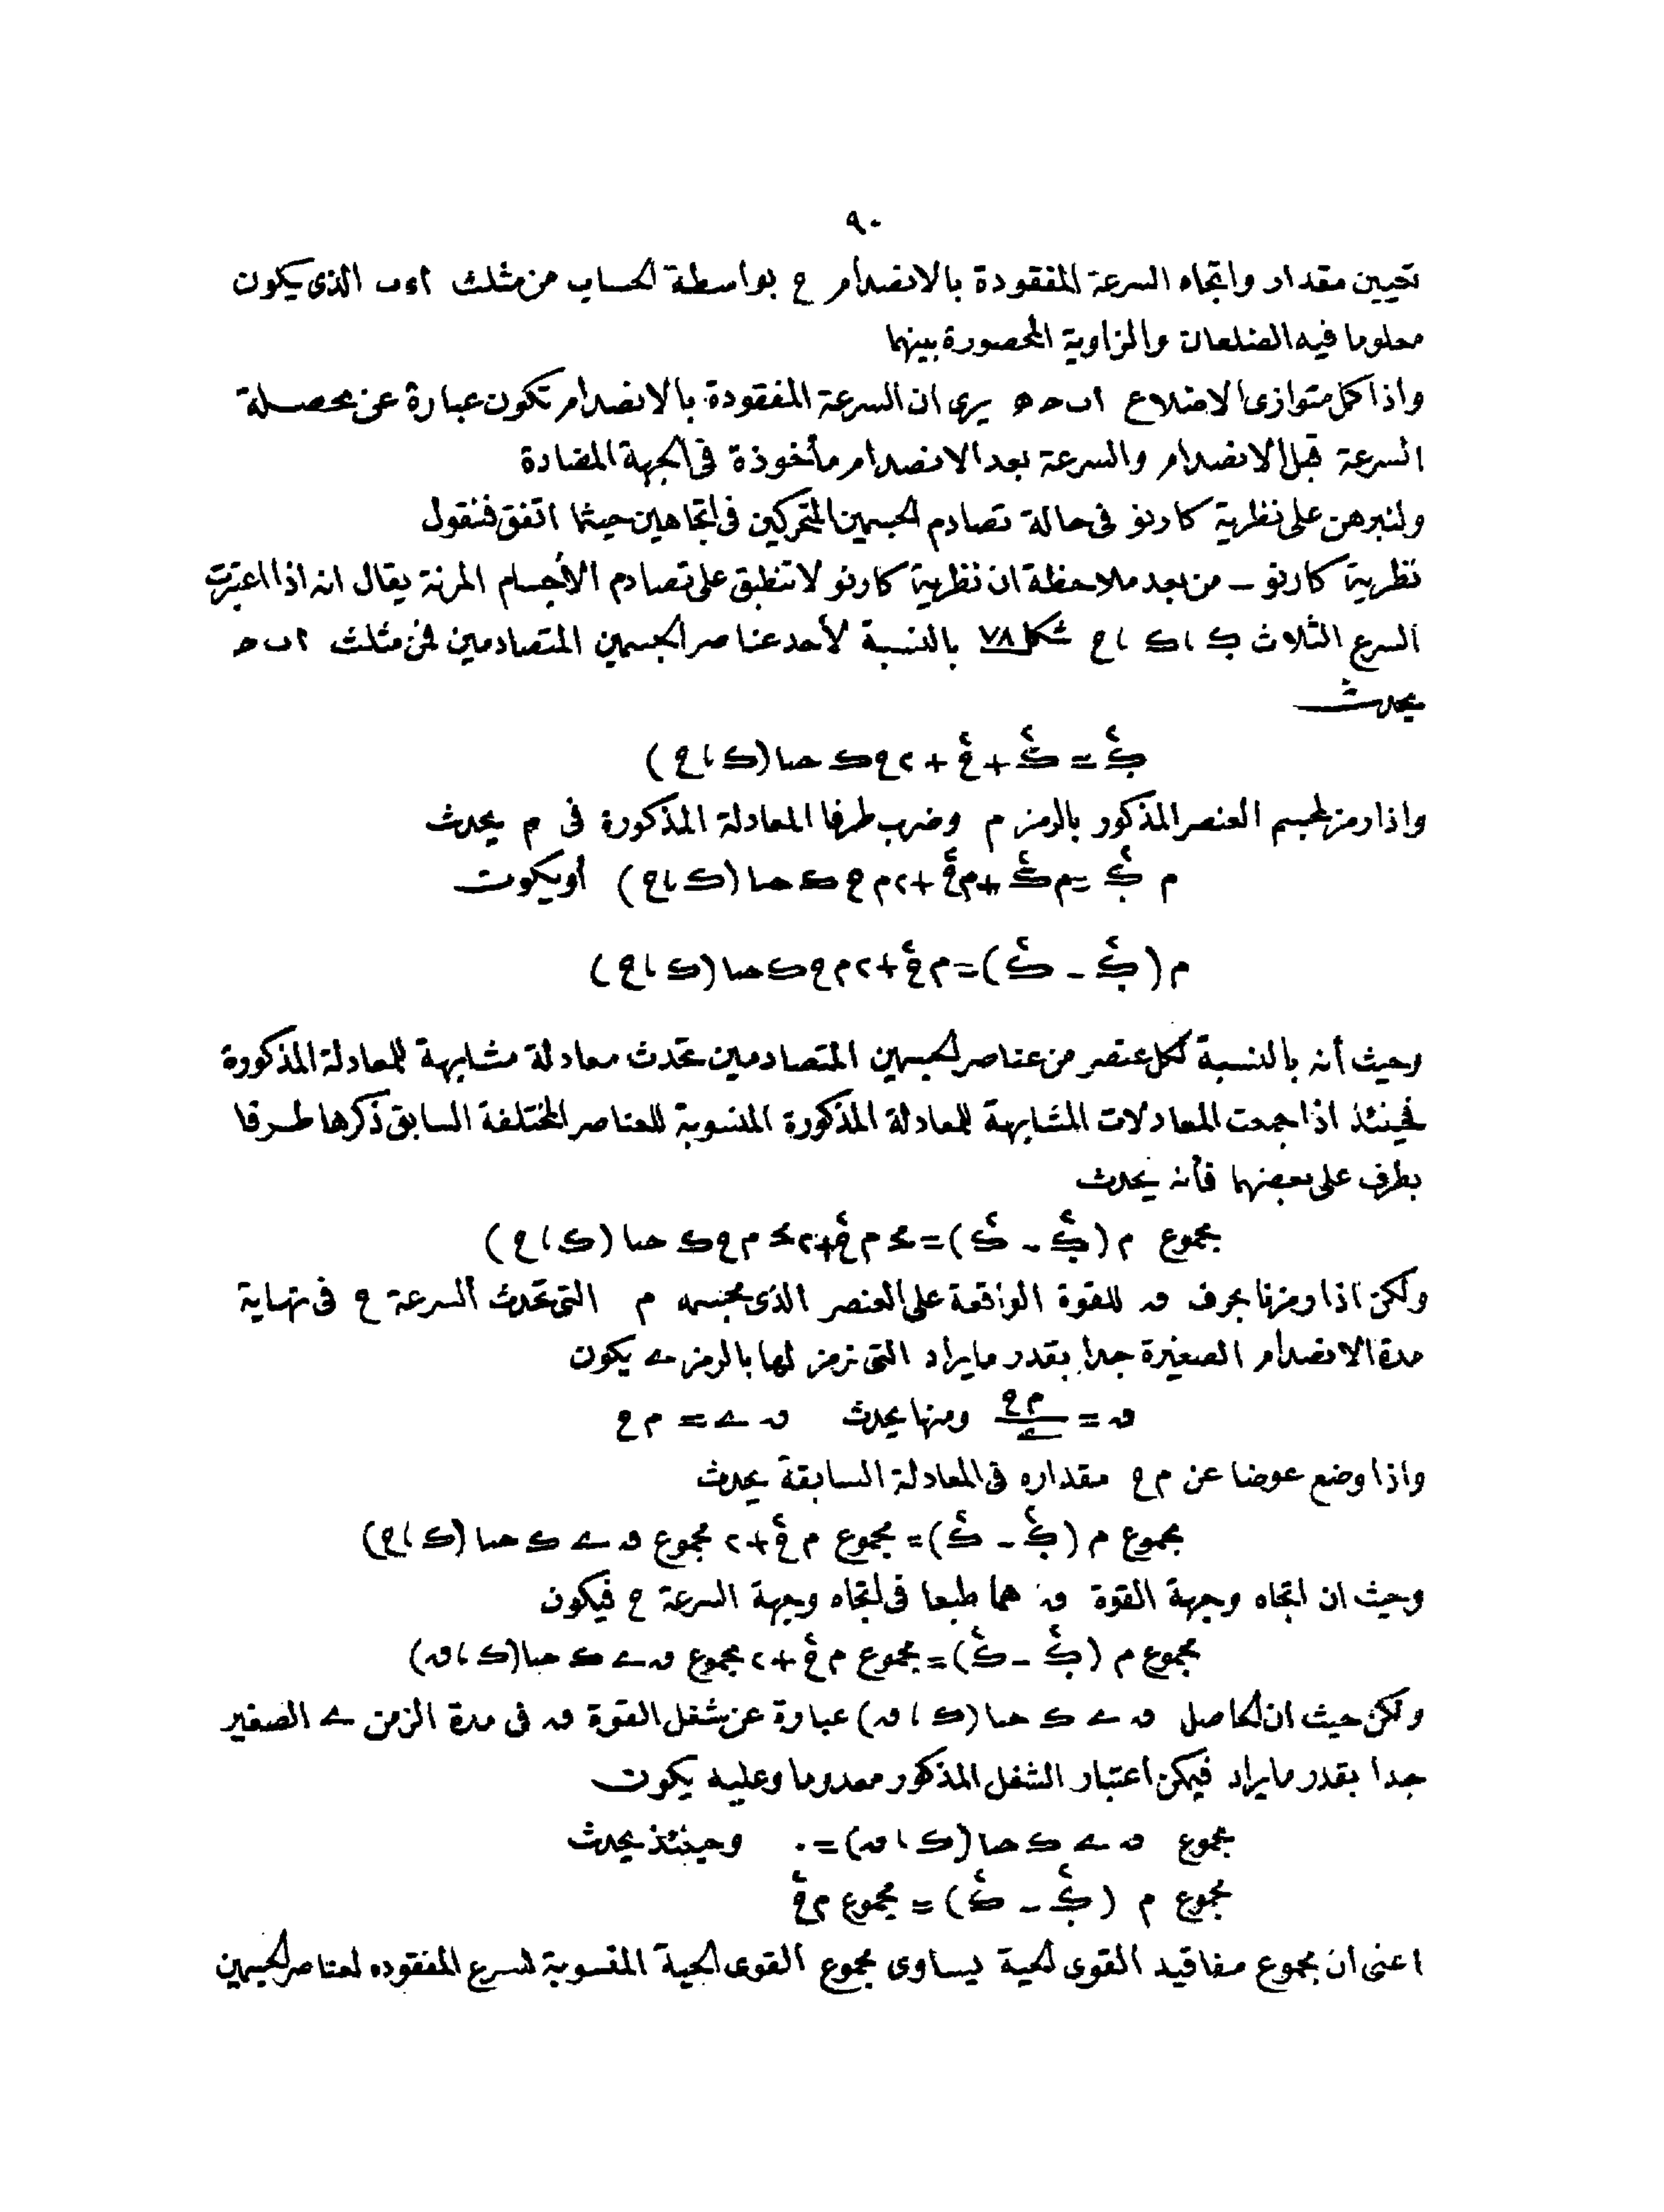 ٩٠
تعيين مقدار واتجاه السرعة المفقودة بالانصدام ع بواسطة الحساب من مثلث ا ء ب الذى يكون
معلوما فيه الضلعان والزاوية المحصورة بينهما
واذا كمل متوازى الاضلاع ا ب ح ه يرى ان السرعة المفقودة بالانصدام تكون عبارة عن محصلة
السرعة قبل الانصدام والسرعة بعد الانصدام مأخوذة فى الجهة المضادة
ولنبرهن على نظرية كارنو فى حالة تصادم الجسمين المتحركين فى اتجاهين حيثما اتفق فنقول
نظرية كارنو ــ من بعد ملاحظة ان نظرية كارنو لا تنطبق على تصادم الأجسام المرنة يقال انه اذا اعتبرت
السرع الثلاث ى ، ك ، ع شكل ٧٨ بالنسبة لأحد عناصر الجسمين المتصادمين فمن مثلث ا ب ح
يحدث
ى٢ = ك٢ + ع٢ + ٢ ع ك حتا (ك ، ع)
واذا رمز لمجسم العنصر المذكور بالرمز م وضرب طرفا المعادلة المذكورة فى م يحدث
م ى٢ = م ك٢ + م ع٢ + ٢ م ع ك حتا (ك ، ع) أو يكون
م (ى٢ - ك٢) = م ع٢ + ٢ م ع ك حتا (ك ، ع)
وحيث أنه بالنسبة لكل عنصر من عناصر الجسمين المتصادمين تحدث معادلة مشابهة للمعادلة المذكورة
فحينئذ اذا جمعت المعادلات المشابهة للمعادلة المذكورة المنسوبة للعناصر المختلفة السابق ذكرها طرفا
بطرف على بعضها فأنه يحدث
مجموع م (ى٢ - ك٢) = مح م ع٢ + ٢ مح م ع ك حتا (ك ، ع)
ولكن اذا رمزنا بحرف ق للقوة الواقعة على العنصر الذى مجسمه م التى تحدث السرعة ع فى نهاية
مدة الانصدام الصغيرة جدا بقدر ما يراد التى نرمز لها بالرمز ے يكون
ق = م ع / ے ومنها يحدث ق ے = م ع
واذا وضع عوضا عن م ع مقداره فى المعادلة السابقة يحدث
مجموع م (ى٢ - ك٢) = مجموع م ع٢ + ٢ مجموع ق ے ك حتا (ك ، ع)
وحيث ان اتجاه وجهة القوة ق هما طبعا فى اتجاه وجهة السرعة ع فيكون
مجموع م (ى٢ - ك٢) = مجموع م ع٢ + ٢ مجموع ق ے ك حتا (ك ، ق)
ولكن حيث ان الحاصل ق ے ك حتا (ك ، ق) عبارة عن شغل القوة ق فى مدة الزمن ے الصغير
جدا بقدر ما يراد فيمكن اعتبار الشغل المذكور معدوما وعليه يكون
مجموع ق ے ك حتا (ك ، ق) = ٠ وحينئذ يحدث
مجموع م (ى٢ - ك٢) = مجموع م ع٢
اعنى ان مجموع مفاقيد القوى الحية يساوى مجموع القوى الحية المنسوبة للسرع المفقوده لعناصر الجسمين